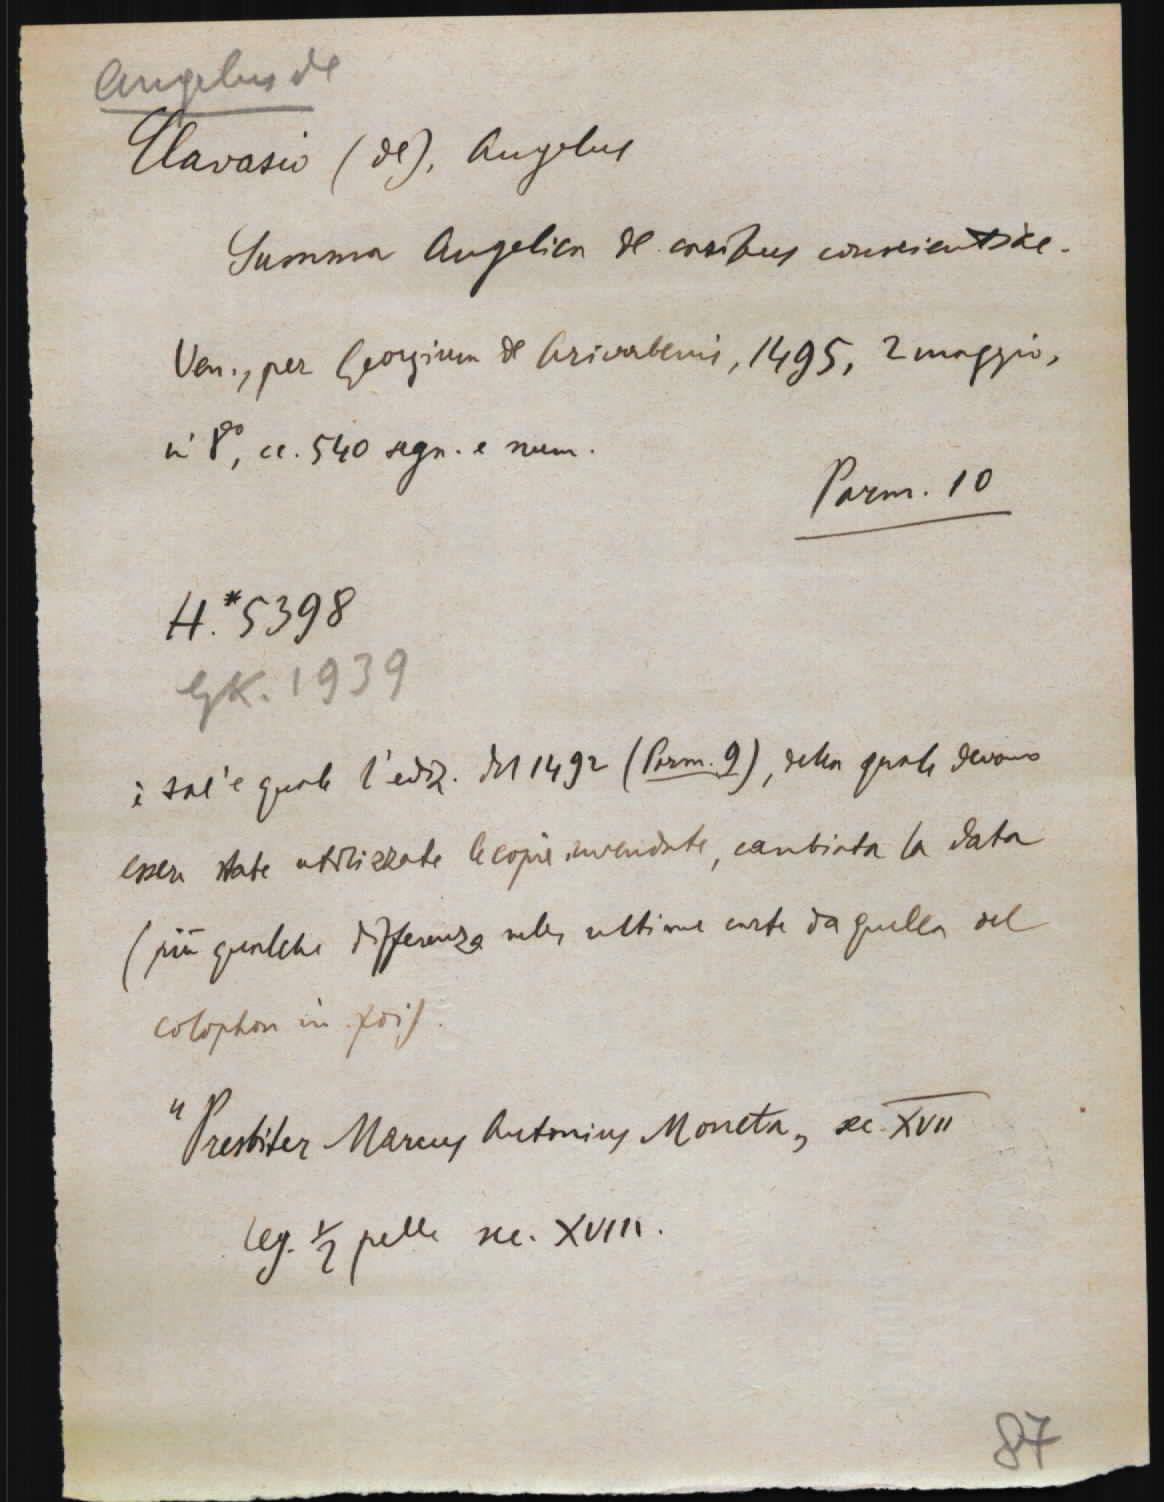 Angelus de
Clavasio (de), Angelus
Summa Angelica de casibus conscientiae.
Ven., per Georgium de Arivabenis, 1495, 2 maggio,
in 8°, cc. 540 segn. e num.
Parm. 10
H.*5398
GK. 1939
è tal'e quale l'ediz. del 1492 (Parm. 9), della quale devono
essere state utilizzate le copie invendute, cambiata la data
(più qualche differenza nelle ultime carte da quella del
colophon in poi).
"Presbiter Marcus Antonius Moneta, sec. XVII
Leg. 1/2 pelle sec. XVIII.
87